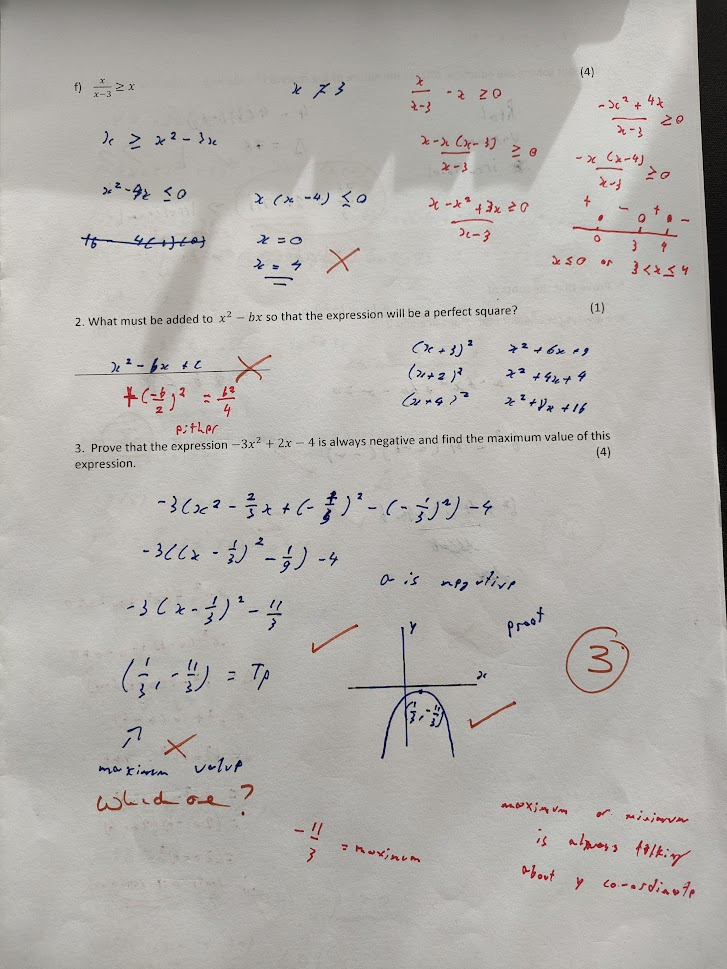 f) x/(x-3) ≥ x
(4)
x ≠ 3
x ≥ x² - 3x
x² - 4x ≤ 0
x (x - 4) ≤ 0
x = 0
x = 4
x/(x-3) - x ≥ 0
(x - x(x-3))/(x-3) ≥ 0
(x - x² + 3x)/(x-3) ≥ 0
(-x² + 4x)/(x-3) ≥ 0
(-x (x-4))/(x-3) ≥ 0
+ - + -
0 3 4
x ≤ 0 or 3 < x ≤ 4
2. What must be added to x² - bx so that the expression will be a perfect square?
(1)
x² - bx + c
+(-b/2)² = b²/4
either
(x+3)² x² + 6x + 9
(x+2)² x² + 4x + 4
(x+4)² x² + 8x + 16
3. Prove that the expression -3x² + 2x - 4 is always negative and find the maximum value of this
expression.
(4)
-3(x² - 2/3 x + (-1/3)² - (-1/3)²) - 4
-3((x - 1/3)² - 1/9) - 4
-3(x - 1/3)² - 11/3
(1/3, -11/3) = TP
maximum value
which one?
a is negative
proof
y
x
(1/3, -11/3)
3
-11/3 = maximum
maximum or minimum
is always talking
about y co-ordinate